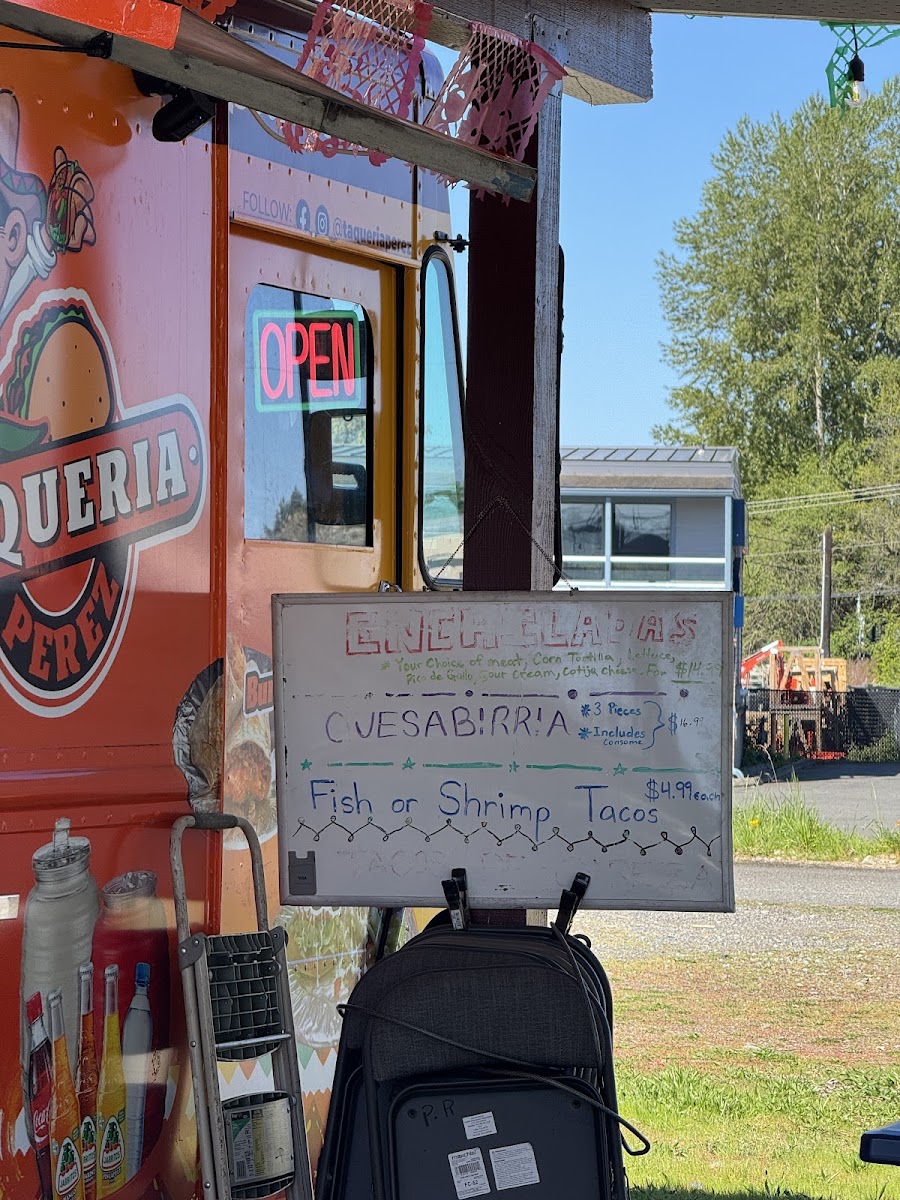 FOLLOW: @taqueriaperez
OPEN
QUERIA
PEREZ
ENCHILADAS
* Your Choice of meat, Corn Tortilla, Lettuce,
Pico de Gallo, Sour Cream, Cotija Cheese. For $14.99
QUESABIRRIA * 3 Pieces $16.99
* Includes
Consome
Fish or Shrimp Tacos $4.99 each
TACOS DE
P.R
JARRITOS
JARRITOS
JARRITOS